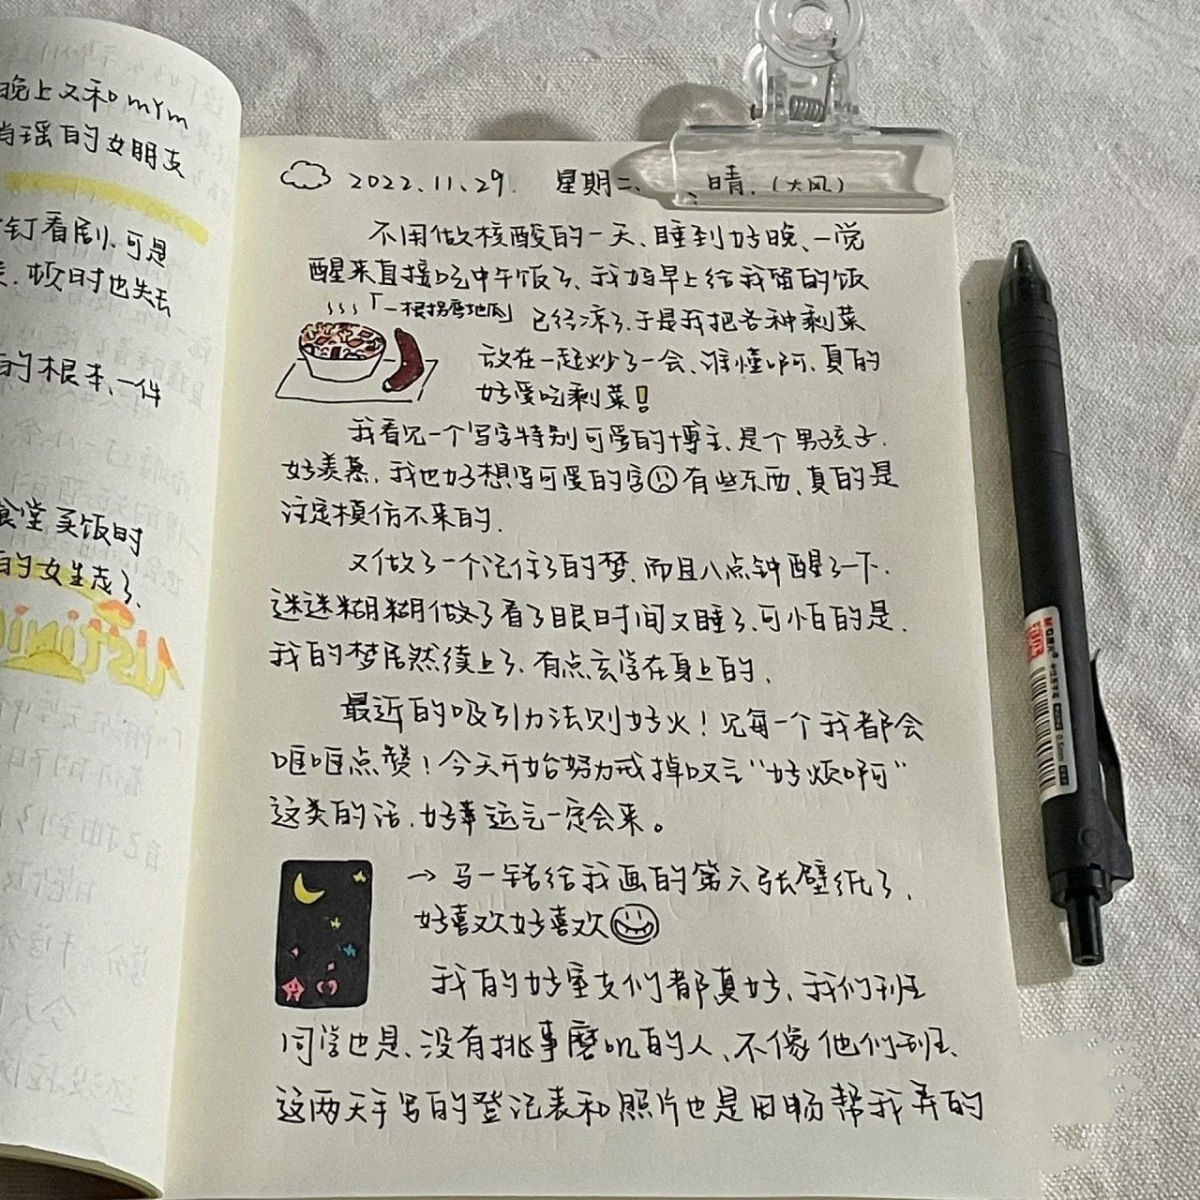 晚上又和mym
逍瑶的女朋友
钉看剧、可是
顿时也失去
的根本、一件
食堂买饭时
的女生走了、
listini
2022.11.29. 星期二、 晴.(大风)
不用做核酸的一天、睡到好晚、一觉
醒来直接吃中午饭了、我妈早上给我留的饭
「一根拐弯地瓜」 已经凉了.于是我把各种剩菜
放在一起炒了一会、谁懂啊、真的
好爱吃剩菜!
我看见一个写字特别可爱的博主、是个男孩子.
好羡慕、我也好想写可爱的字 有些东西、真的是
注定模仿不来的.
又做了一个记住了的梦、而且八点钟醒了一下.
迷迷糊糊做了看了眼时间又睡了、可怕的是.
我的梦居然续上了、有点玄学在身上的.
最近的吸引力法则好火!见每一个我都会
哐哐点赞!今天开始努力戒掉叹气“好烦啊”
这类的话、好幸运气一定会来。
→ 马一铭给我画的第六张壁纸了.
好喜欢好喜欢
我的好室友们都真好、我们班
同学也是、没有挑事磨叽的人、不像他们班、
这两天手写的登记表和照片也是田畅帮我弄的
0.5mm